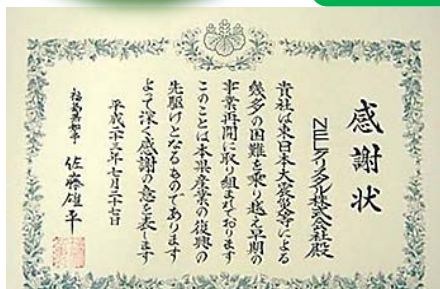 感謝状
NELクリスタル株式会社殿
貴社は東日本大震災等による
幾多の困難を乗り越え早期の
事業再開に取り組まれております
このことは本県産業の復興の
先駆けとなるものであります
よって深く感謝の意を表します
平成二十三年七月二十七日
福島県知事 佐藤雄平